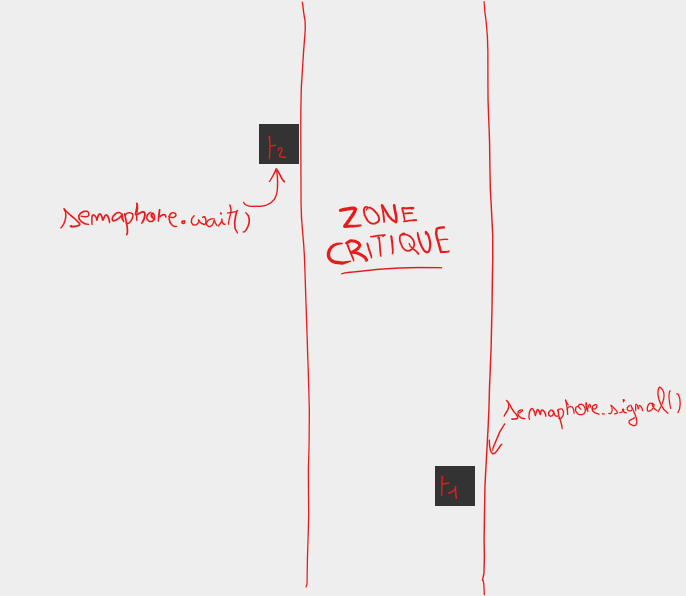 t2
semaphore.wait()
ZONE
CRITIQUE
semaphore.signal()
t1